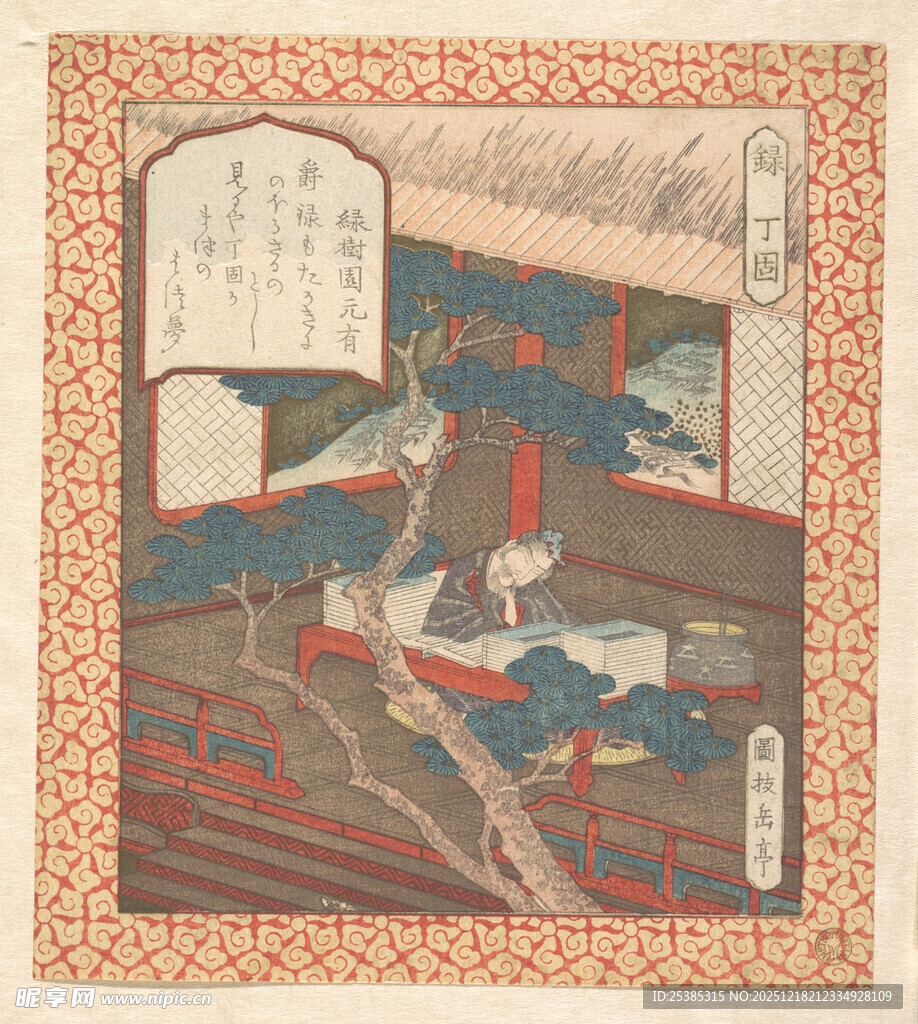 録 丁固
緑樹園元有
爵禄もたかきに
のほるさるの
とし
見るや丁固か
まつの
はつ夢
圖技岳亭
昵享网 www.nipic.cn
ID:25385315 NO:20251218212334928109